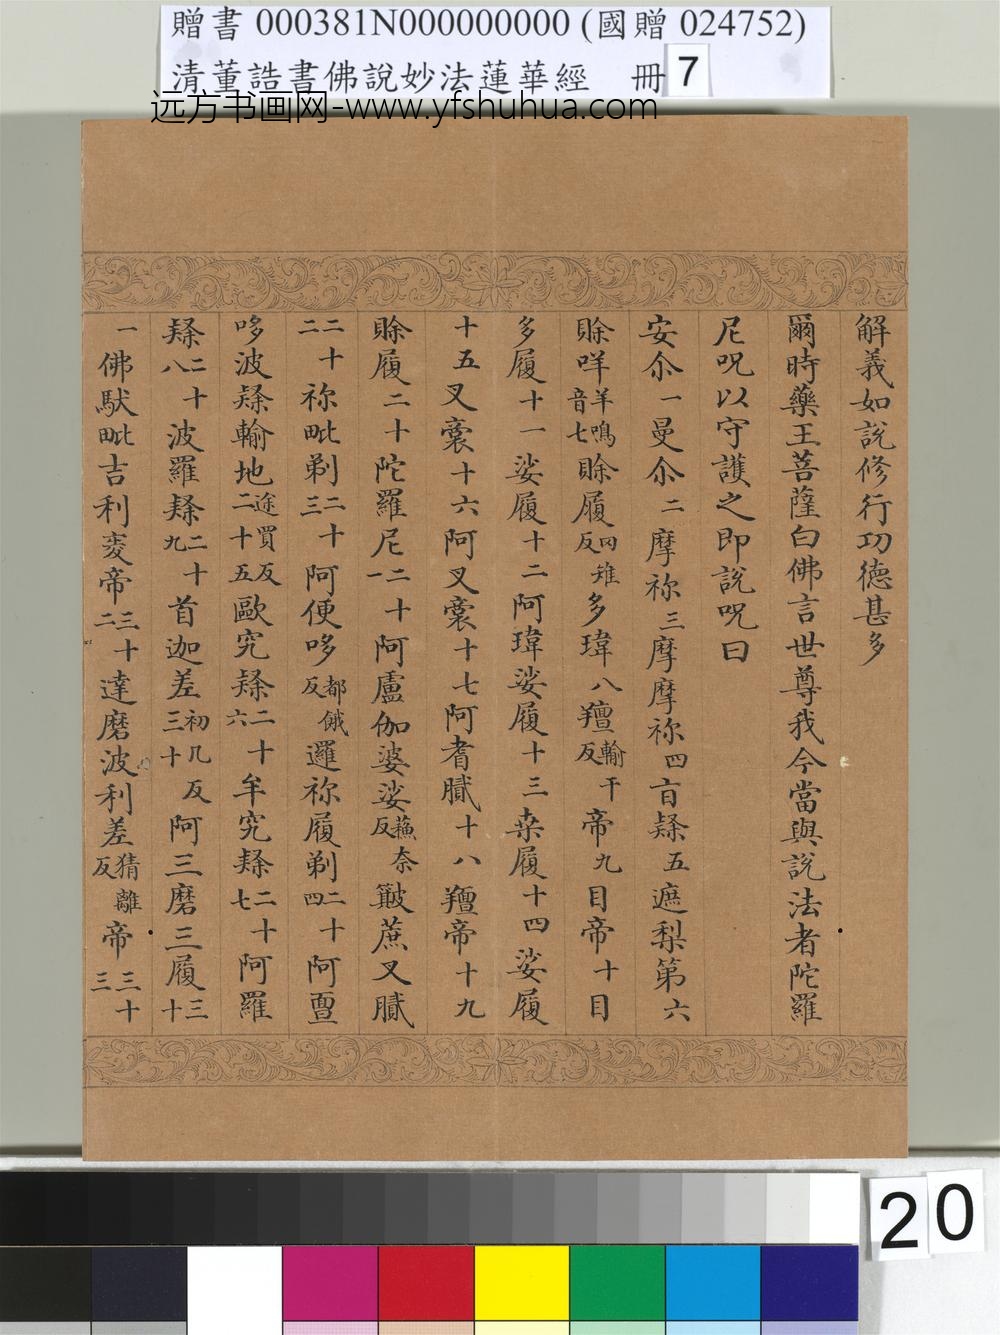 贈書 000381N000000000 (國贈 024752)
清董誥書佛說妙法蓮華經 冊 7
远方书画网-www.yfshuhua.com
解義如說修行功德甚多
爾時藥王菩薩白佛言世尊我今當與說法者陀羅
尼呪以守護之即說呪曰
安尒一曼尒二摩祢三摩摩祢四旨隸五遮梨第六
賒咩羊鳴音七賒履冈雉反多瑋八羶輸干反帝九目帝十目
多履十一娑履十二阿瑋娑履十三桑履十四娑履
十五叉裔十六阿叉裔十七阿耆膩十八羶帝十九
賒履二十陀羅尼二十一阿盧伽婆娑蘇奈反簸蔗叉膩
二十二祢毗剃二十三阿便哆都餓反邏祢履剃二十四阿亶
哆波隸輸地途買反二十五歐究隸二十六牟究隸二十七阿羅
隸二十八波羅隸二十九首迦差初几反三十阿三磨三履三十
一佛馱毗吉利袠帝三十二達磨波利差猜離反帝三十三
20